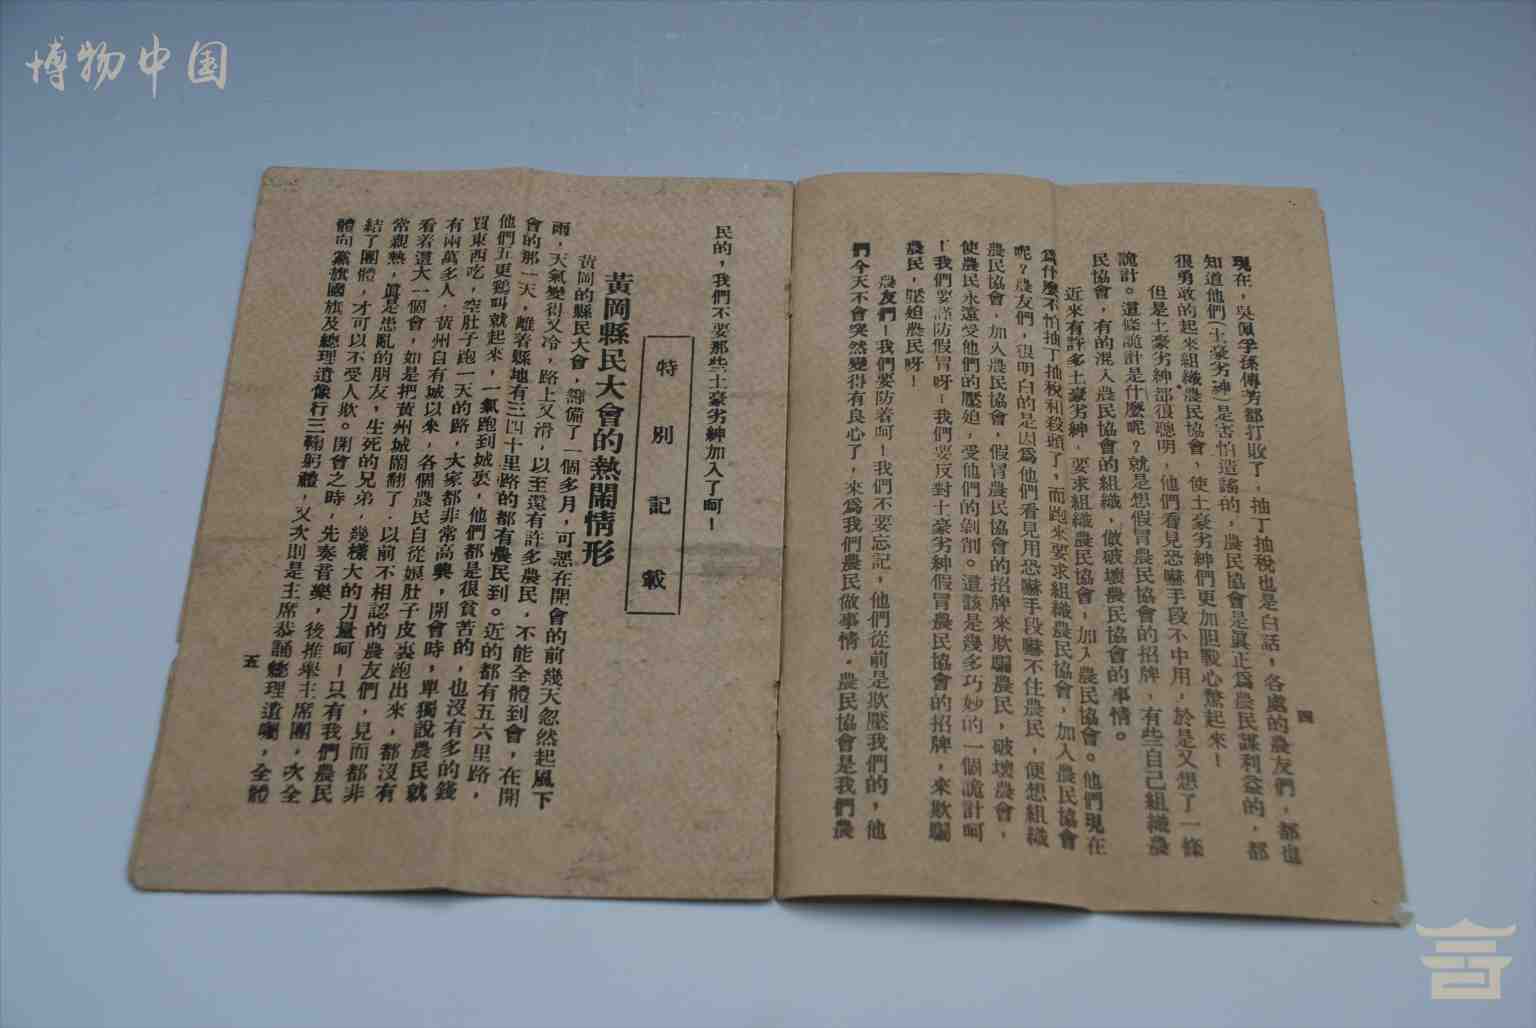 博物中国
四
現在，吳佩孚孫傳芳都打敗了，抽丁抽稅也是白話，各處的農友們，都也
知道他們(土豪劣紳)是害怕造謠的，農民協會是眞正爲農民謀利益的，都
很勇敢的起來組織農民協會，使土豪劣紳們更加胆戰心驚起來！
但是土豪劣紳都很聰明，他們看見恐嚇手段不中用，於是又想了一條
詭計。這條詭計是什麼呢？就是想假冒農民協會的招牌，有些自己組織農
民協會，有的混入農民協會的組織，做破壞農民協會的事情。
近來有許多土豪劣紳，要求組織農民協會，加入農民協會。他們現在
爲什麼不怕抽丁抽稅和殺頭了，而跑來要求組織農民協會，加入農民協會
呢？農友們，很明白的是因爲他們看見用恐嚇手段嚇不住農民，便想組織
農民協會，加入農民協會，假冒農民協會的招牌來欺騙農民，破壞農會，
使農民永遠受他們的壓迫，受他們的剝削。這該是幾多巧妙的一個詭計呵
！我們要謹防假冒呀！我們要反對土豪劣紳假冒農民協會的招牌，來欺騙
農民，壓迫農民呀！
農友們！我們要防着呵！我們不要忘記，他們從前是欺壓我們的，他
們今天不會突然變得有良心了，來爲我們農民做事情。農民協會是我們農
民的，我們不要那些土豪劣紳加入了呵！
特別記載
黃岡縣民大會的熱鬧情形
黃岡的縣民大會，籌備了一個多月，可惡在開會的前幾天忽然起風下
雨，天氣變得又冷，路上又滑，以至還有許多農民，不能全體到會，在開
會的那一天，離着縣地有三四十里路的都有農民到。近的都有五六里路，
他們五更鷄叫就起來，一氣跑到城裏，他們都是很貧苦的，也沒有多的錢
買東西吃，空肚子跑一天的路，大家都非常高興，開會時，單獨說農民就
有兩萬多人，黃州自有城以來，各個農民自從娘肚子皮裏跑出來，都沒有
看着這大一個會，如是把黃州城鬧翻了，以前不相認的農友們，見面都非
常親熱，眞是患亂的朋友，生死的兄弟，幾樣大的力量呵！只有我們農民
結了團體，才可以不受人欺。開會之時，先奏音樂，後推舉主席團，次全
體向黨旗國旗及總理遺像行三鞠躬禮，又次則是主席恭誦總理遺囑，全體
五